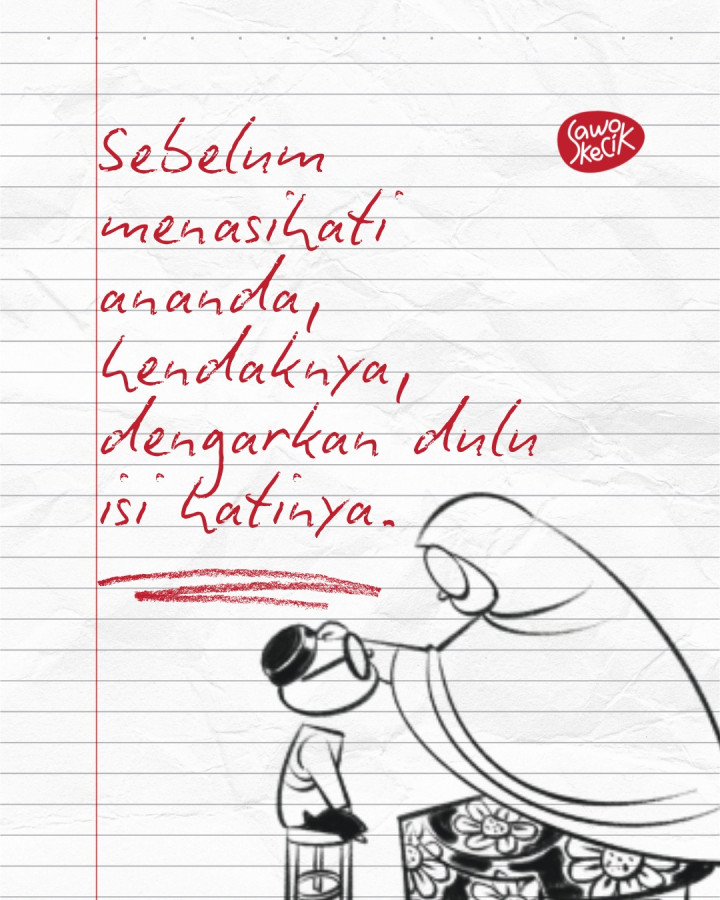 Sebelum
menasihati
ananda,
hendaknya,
dengarkan dulu
isi hatinya.
Sawo
Kecik